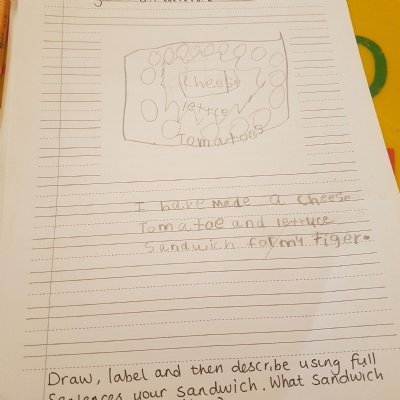 cheese
lettce
Tomatoes
I have made a cheese
Tomatoe and lettuce
sandwich for my tiger.
Draw, label and then describe using full
sentences your sandwich. What sandwich